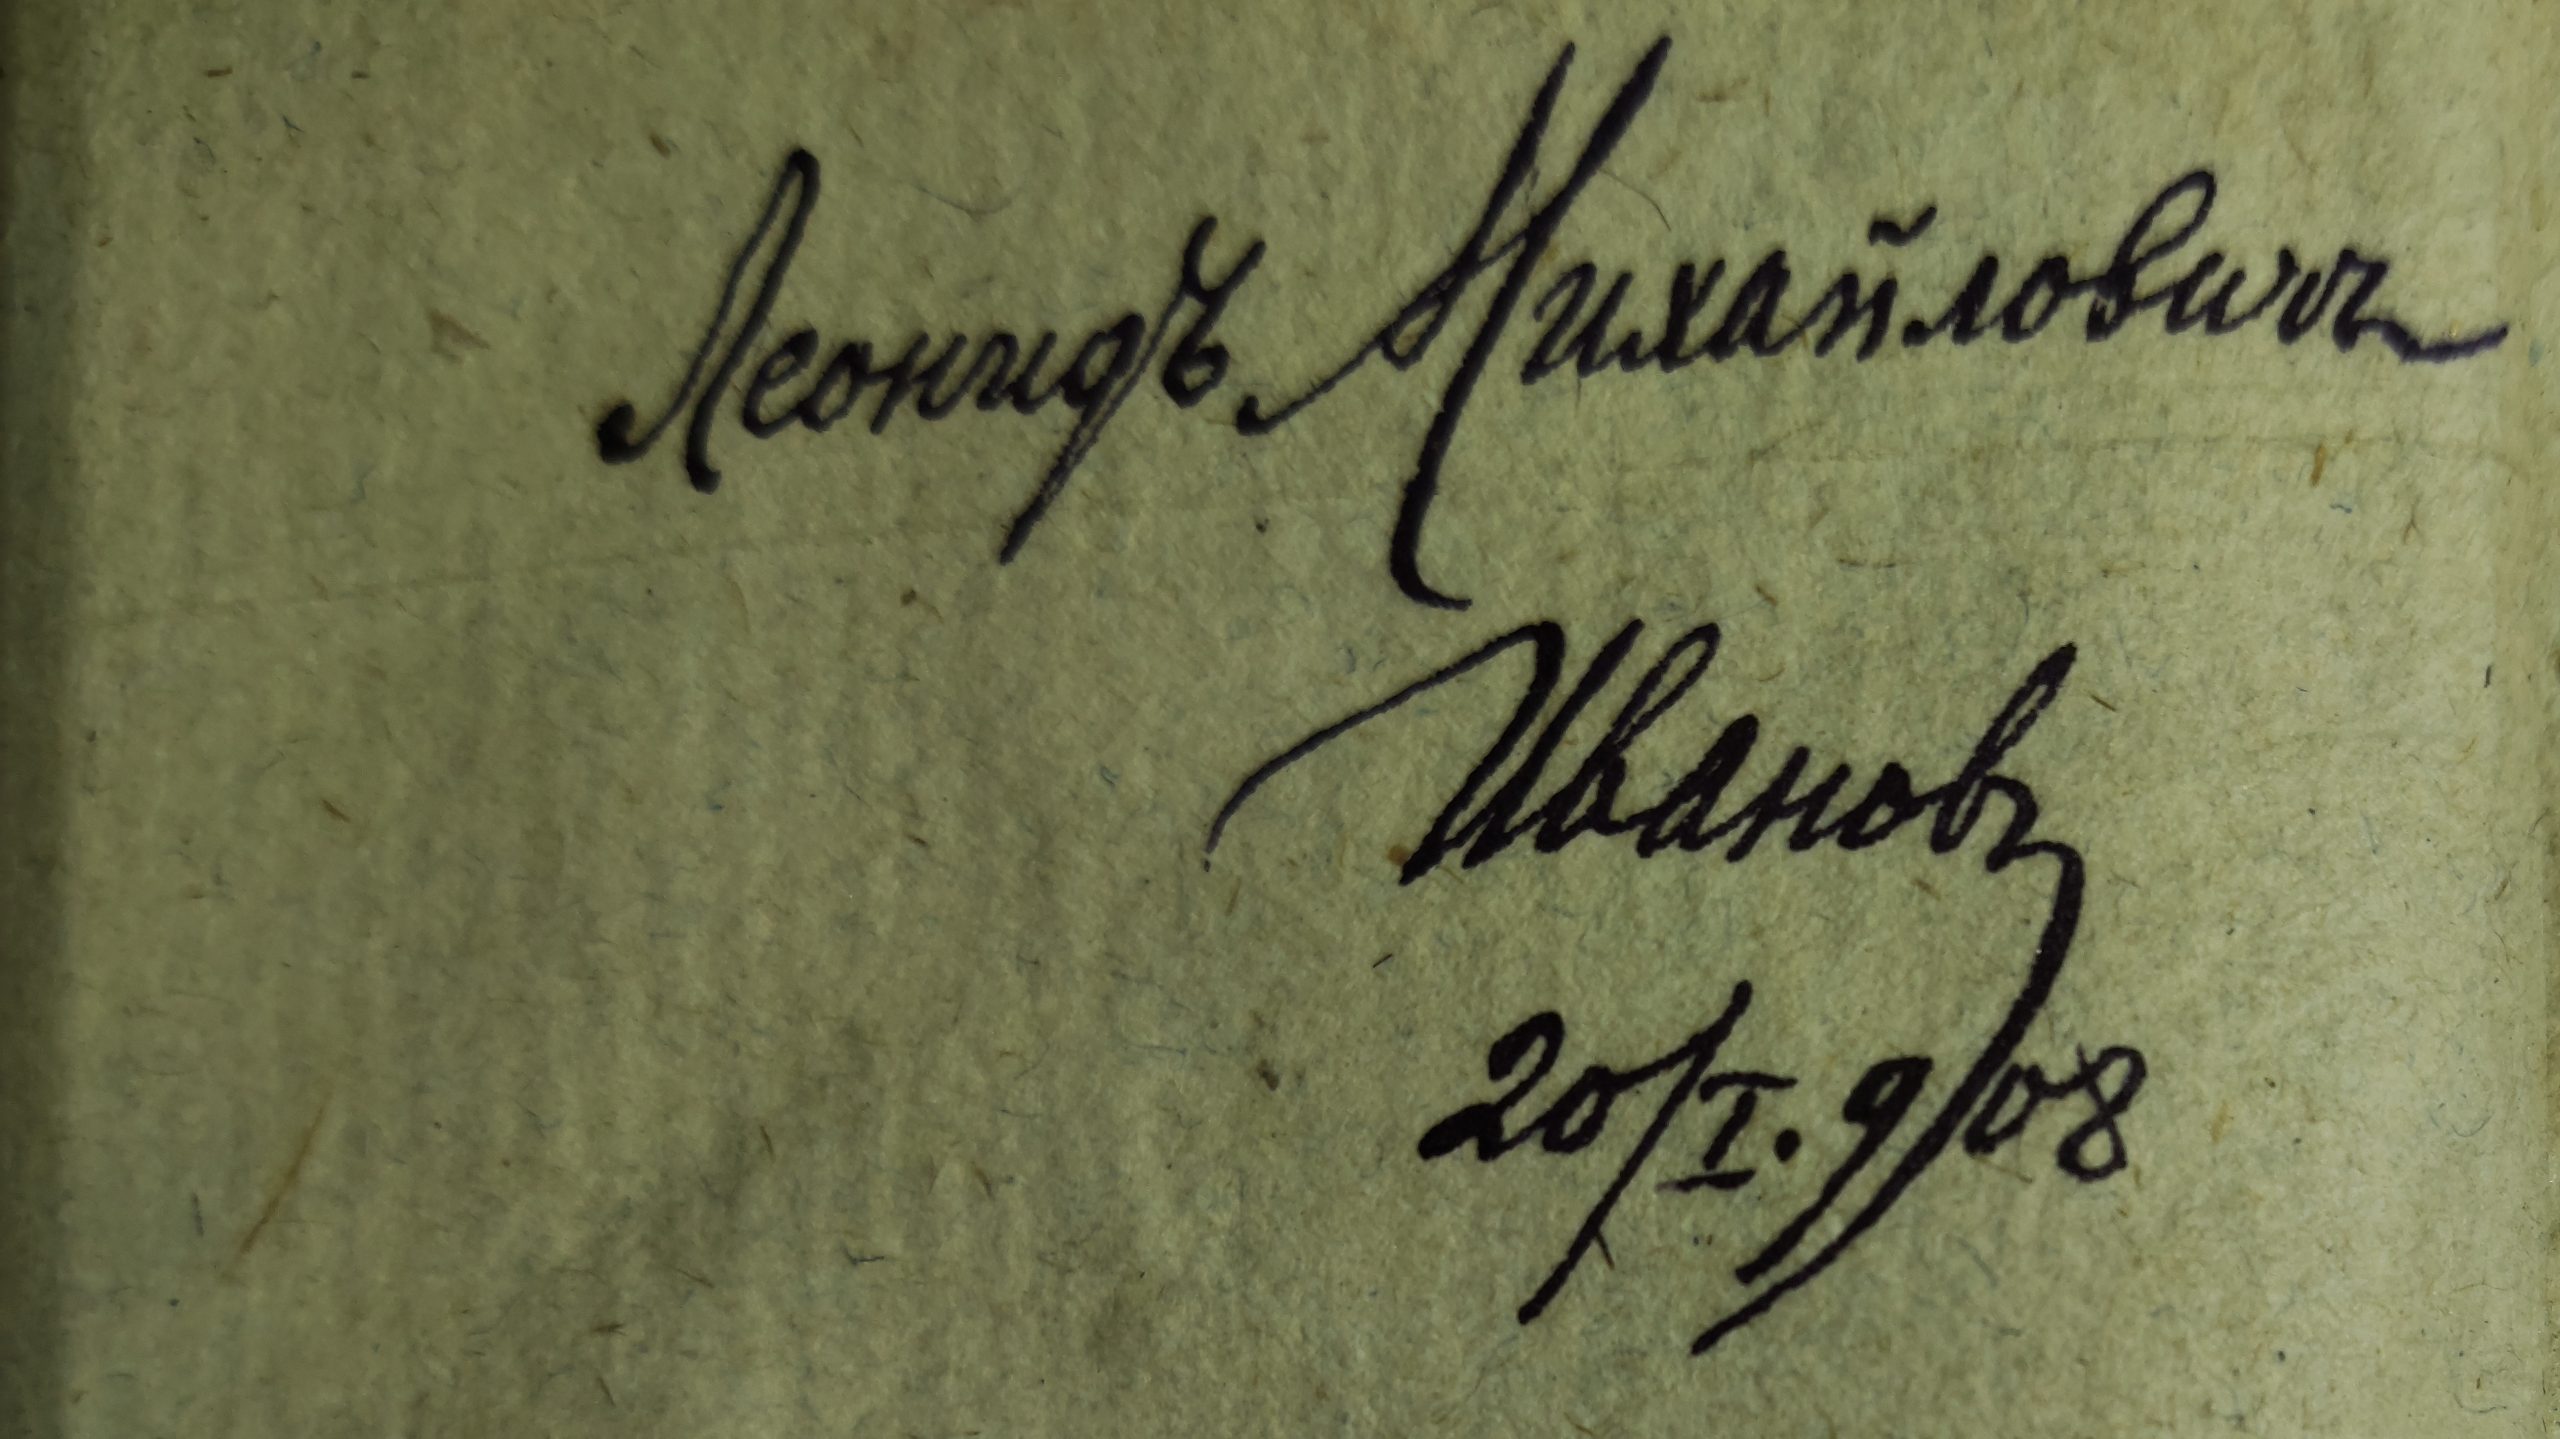 Леонидъ Михайловичъ
Ивановъ
20/I.908